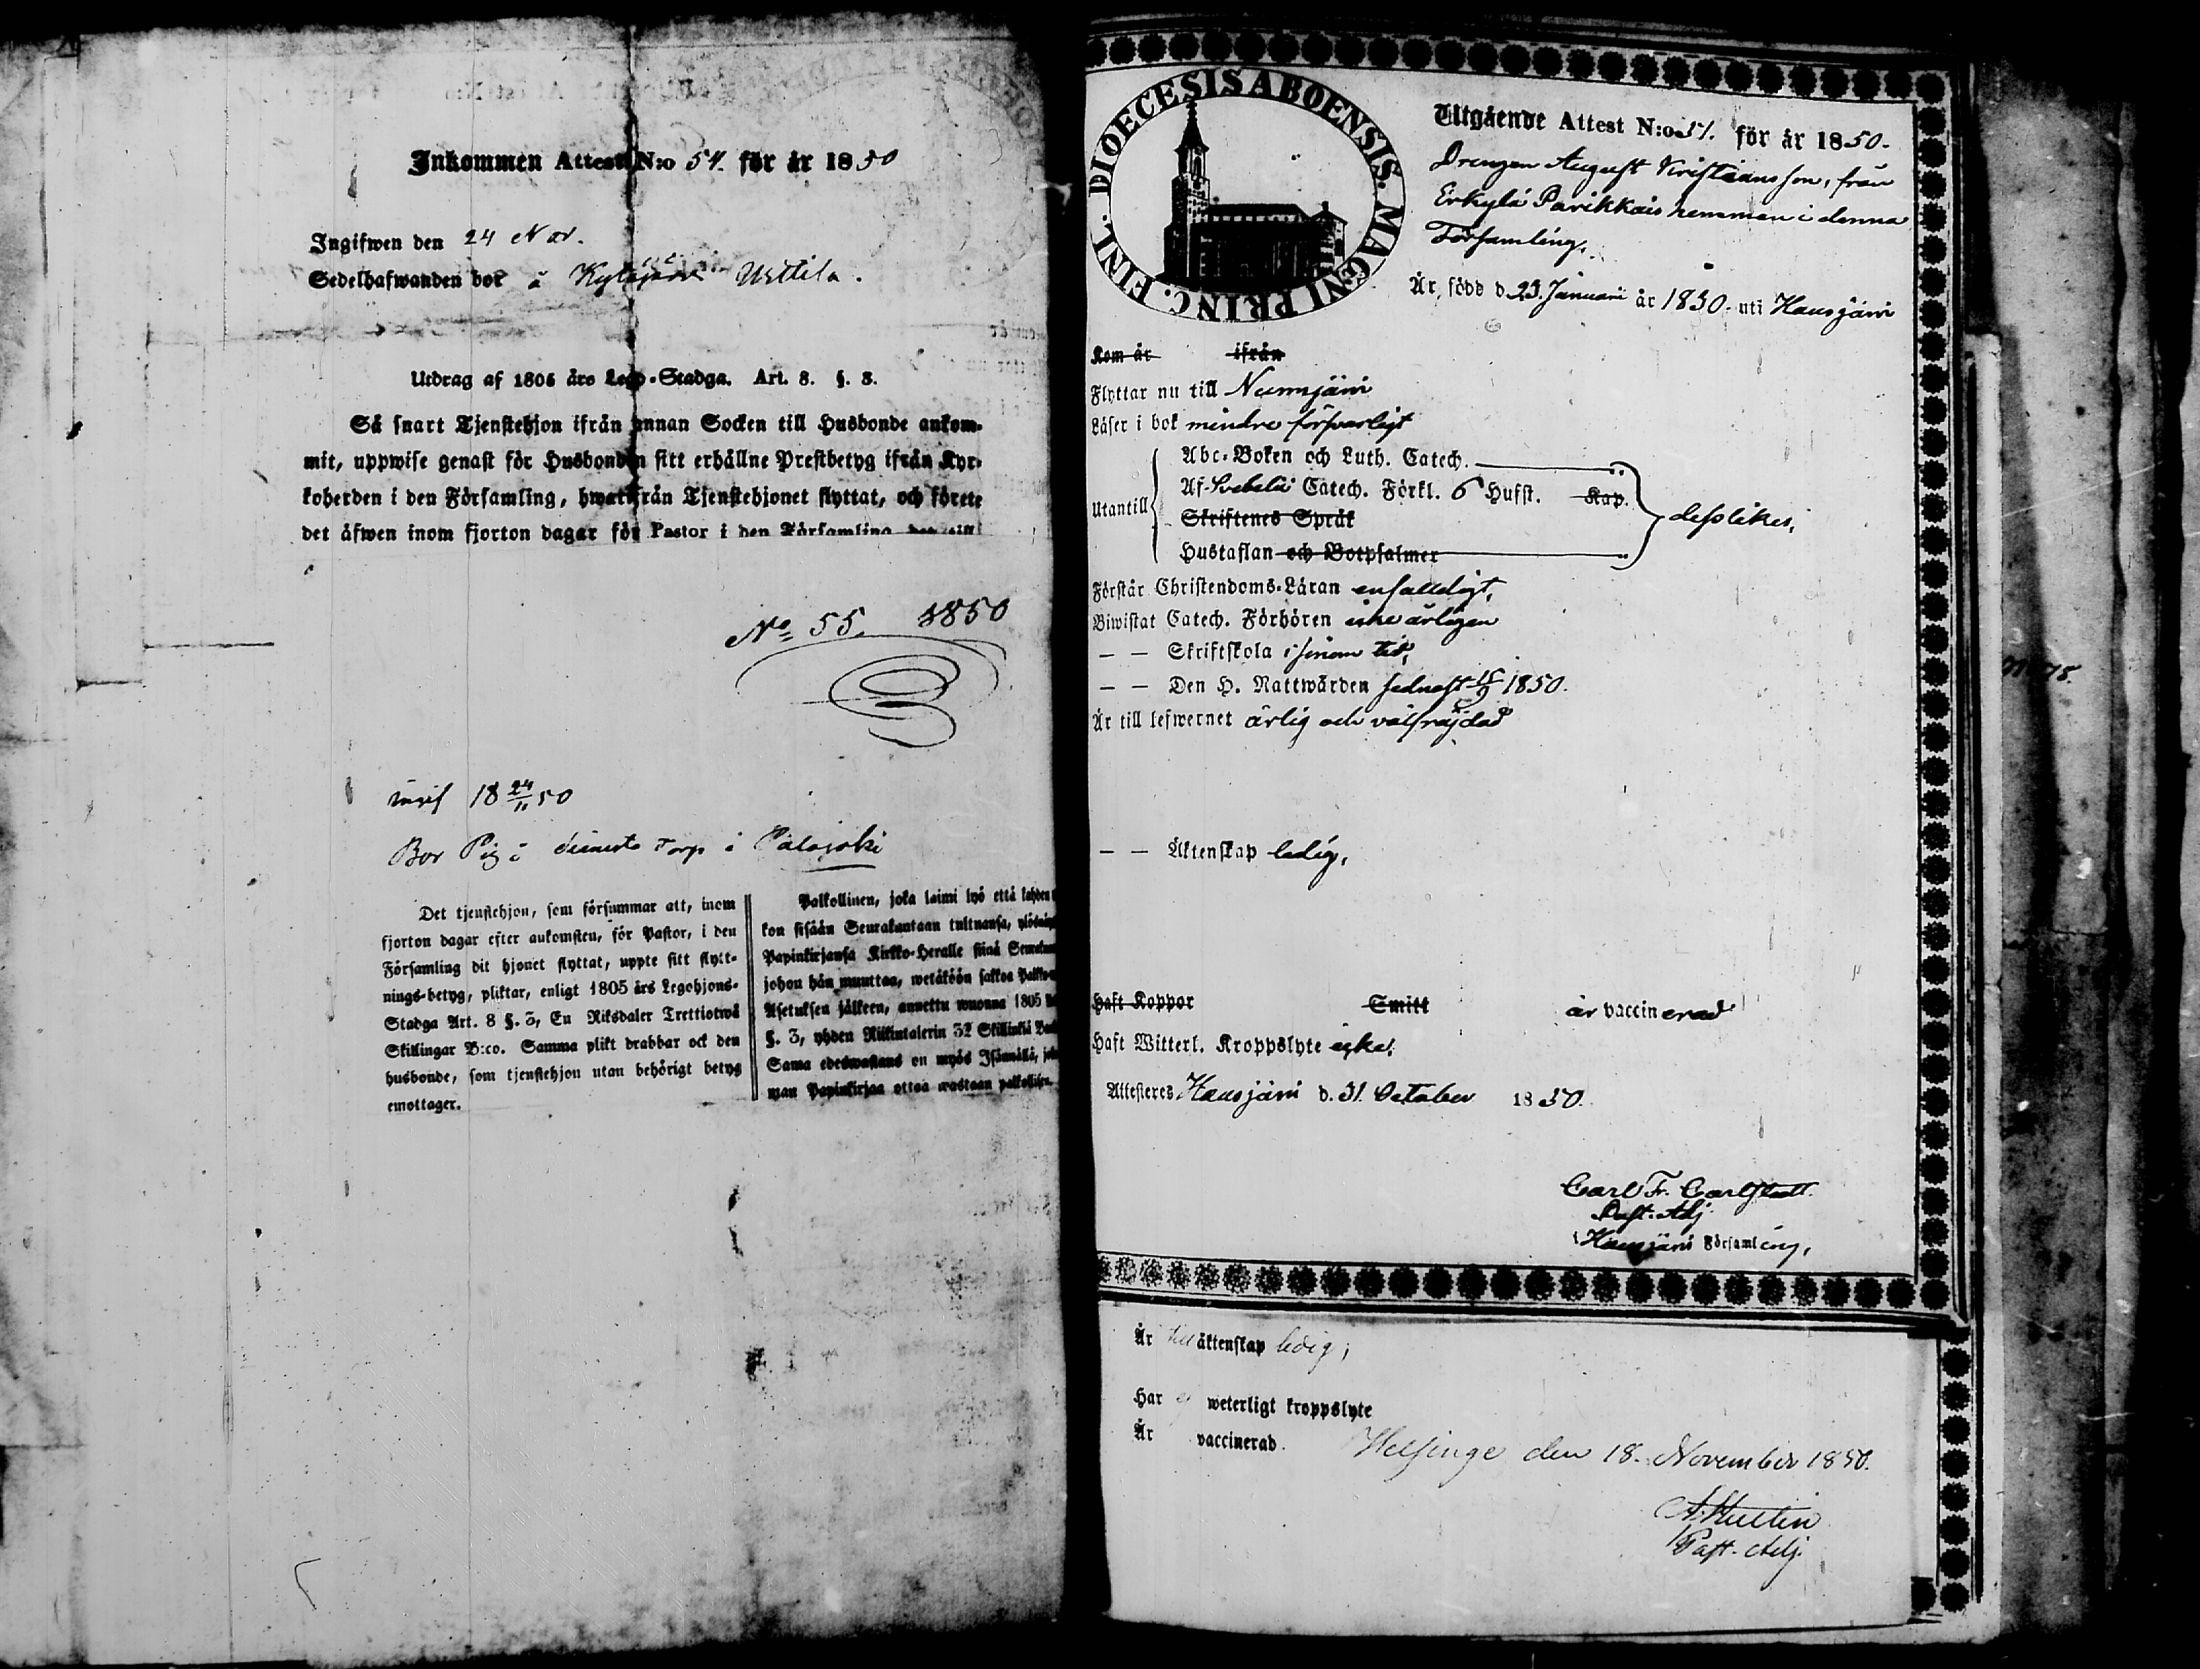 Inkommen Attest N:o 54. för år 1850
Ingifwen den 24 Nov.
Sedelhafwanden bor å Kytäjärvi Uttila.
Utdrag af 1805 års Lego-Stadga. Art. 8. §. 3.
Så snart Tjenstehjon ifrån annan Socken till Husbonde ankom-
mit, uppwise genast för Husbonden sitt erhållne Prestbetyg ifrån Kyr-
koherden i den Församling, hwarifrån Tjenstehjonet flyttat, och förete
det äfwen inom fjorton dagar för Pastor i den Församling
No 55. 1850
ingif 18 24/11 50
Bor Pig i Torp i Palojoki
Det tjenstehjon, som försummar att, inom
fjorton dagar efter ankomsten, för Pastor, i den
Församling dit hjonet flyttat, uppte sitt flytt-
nings-betyg, pliktar, enligt 1805 års Legohjons-
Stadga Art. 8 §. 3, En Riksdaler Trettiotwå
Skillingar B:co. Samma plikt drabbar ock den
husbonde, som tjenstehjon utan behörigt betyg
emottager.
Palkollinen, joka laimi lyö että kahden
kon sisään Seurakuntaan tultuansa,
Papinkirjansa Kirkko-Heralle siinä
johon hän muuttaa, wetäköön sakkoa
Asetuksen jälkeen, annettu wuonna 1805
§. 3, yhden Riikintalerin 32 Skillinkiä
Sama edeswastaus on myös Isännällä,
man Papinkirjaa ottaa wastaan palkollisen.
DIOECESIS ABOENSIS. MAGNI PRINC. FINL.
Utgående Attest N:o 37. för år 1850.
Drengen August Kristiansson, från
Erkylä Parikkais hemman i denna
Församling,
Är, född d. 23. Januari år 1830. uti Hausjärvi
Kom år ifrån
Flyttar nu till Nurmijärvi
Läser i bok mindre försvarligt
Utantill
Abc-Boken och Luth. Catech.
Af Svebelii Catech. Förkl. 6 Hufst. Kap.
Skriftenes Språk
Hustaflan och Botpsalmer
dessliker,
Förstår Christendoms-Läran enfaldigt,
Biwistat Catech. Förhören icke årligen
— — Skriftskola i sinom tid,
— — Den H. Nattwården sednast 15/9 1850.
Är till lefwernet ärlig och välfräjdad
— — Äktenskap ledig,
Haft Koppor Smitt är vaccinerad
Haft Witterl. Kroppslyte icke.
Attesteres Hausjärvi d. 31. October 1850.
Carl Fr. Carlstedt.
Past. Adj.
i Hausjärvi Församling,
Är till äktenskap ledig;
Har ej weterligt kroppslyte
Är vaccinerad.
Helsinge den 18. November 1850.
A. Hultin
Past. Adj.